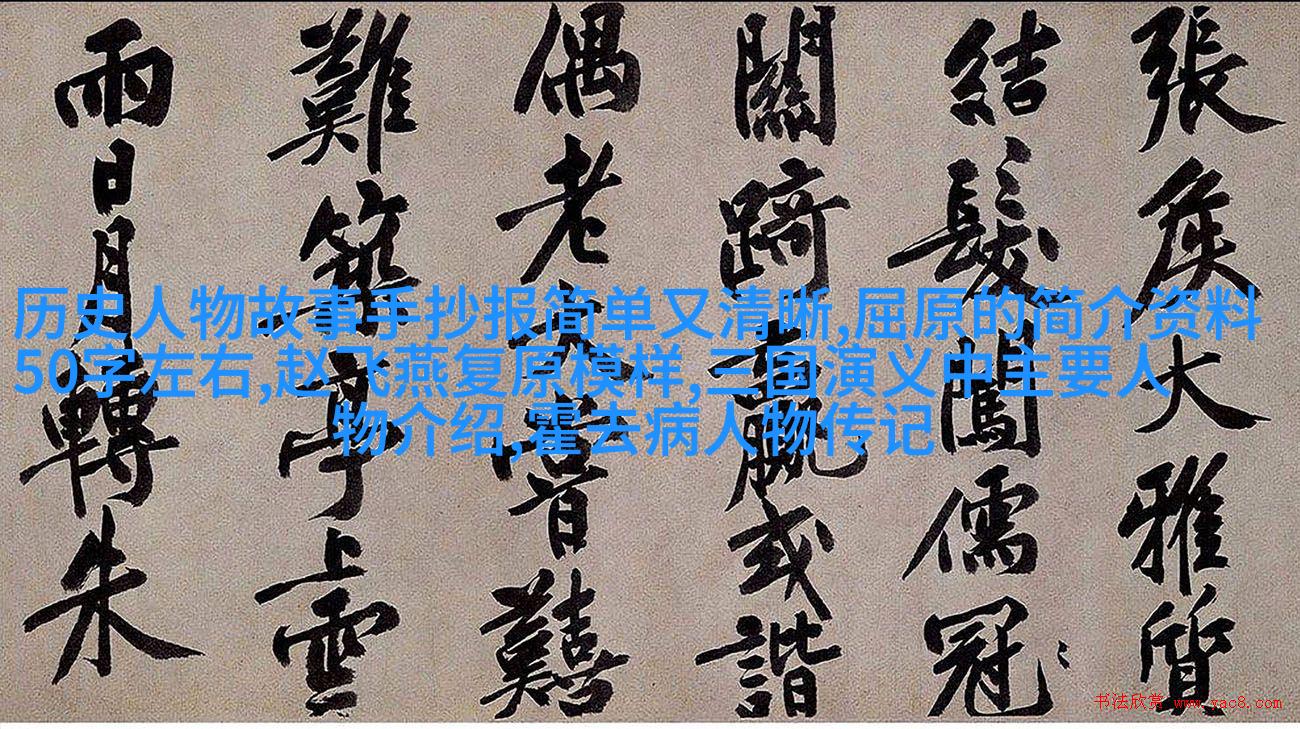 張矦大雅質
結髮闖儒冠
關踦贏或諧
偶老大嘗囏
難築亭上雲
雨日月轉朱
历史人物故事手抄报简单又清晰,屈原的简介资料
50字左右,赵飞燕复原模样,三国演义中主要人
物介绍,霍去病人物传记
书法欣赏 www.yac8.com